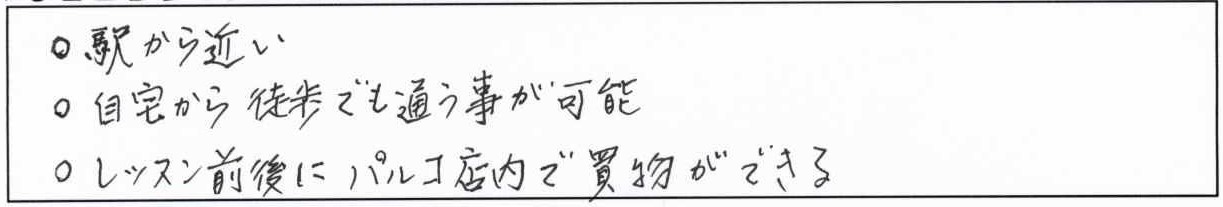 ○ 駅から近い
○ 自宅から徒歩でも通う事が可能
○ レッスン前後にパルコ店内で買物ができる